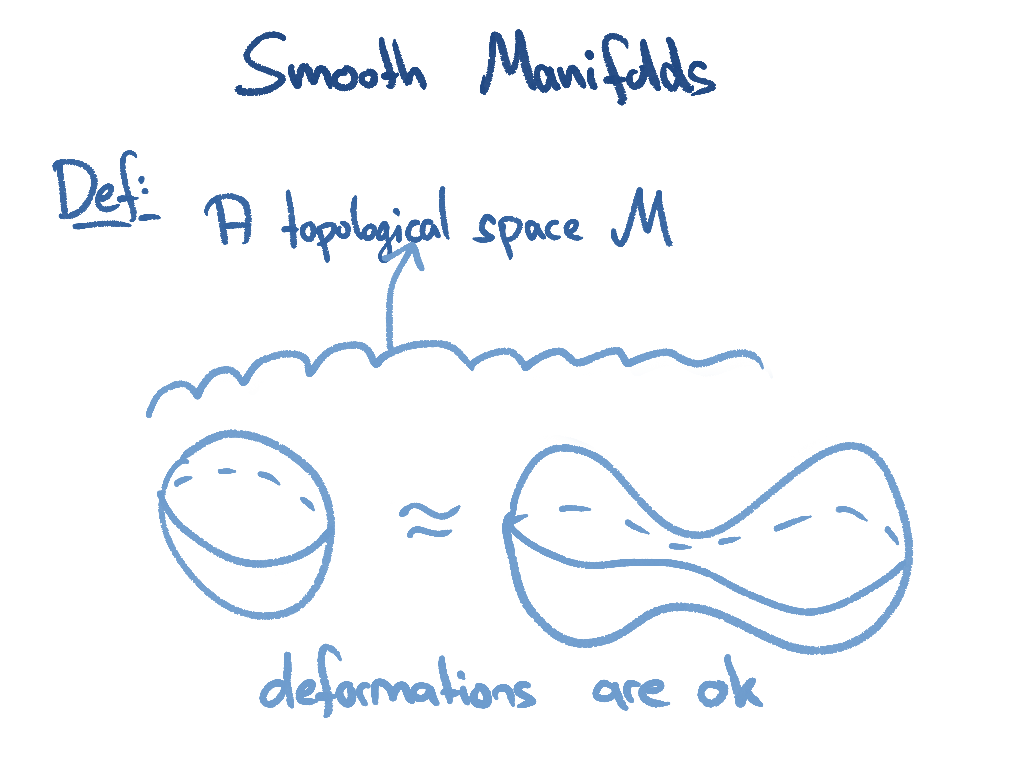 Smooth Manifolds
Def:
A topological space M
≈
deformations are ok